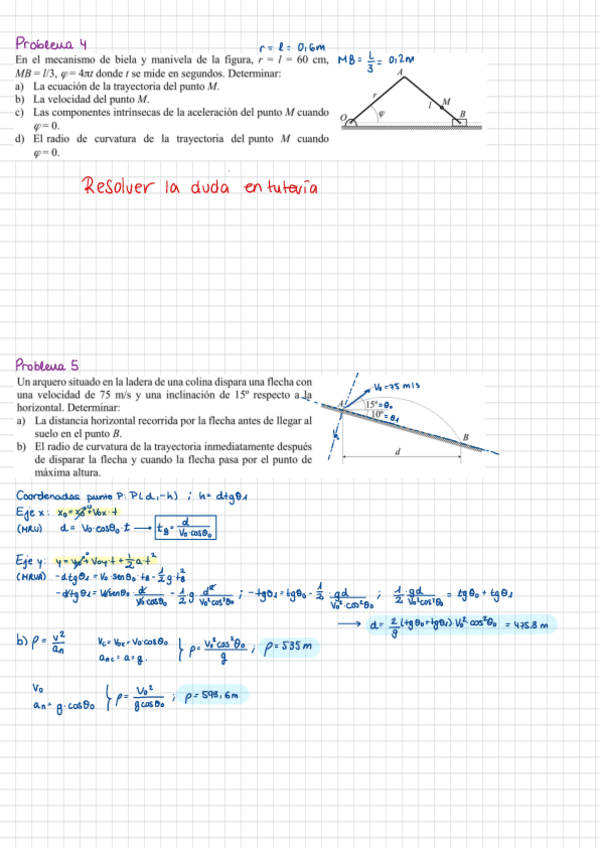 Problema 4
r = l = 0,6m
En el mecanismo de biela y manivela de la figura, r = l = 60 cm,
MB = L/3 = 0,2m
MB = l/3, φ = 4πt donde t se mide en segundos. Determinar:
a) La ecuación de la trayectoria del punto M.
b) La velocidad del punto M.
c) Las componentes intrínsecas de la aceleración del punto M cuando
φ = 0.
d) El radio de curvatura de la trayectoria del punto M cuando
φ = 0.
A
r
l
M
O
φ
B
Resolver la duda en tutoría
Problema 5
Un arquero situado en la ladera de una colina dispara una flecha con
una velocidad de 75 m/s y una inclinación de 15º respecto a la
horizontal. Determinar:
a) La distancia horizontal recorrida por la flecha antes de llegar al
suelo en el punto B.
b) El radio de curvatura de la trayectoria inmediatamente después
de disparar la flecha y cuando la flecha pasa por el punto de
máxima altura.
V₀=75 m/s
A
15º=θ₀
10º=θ₁
B
h
d
Coordenadas punto P: P(d,-h) ; h= d·tgθ₁
Eje x: x₀=x₀+V₀x·t
(MRU) d= V₀·cosθ₀·t → t_B= d/(V₀·cosθ₀)
Eje y: y=y₀+V₀y·t+½a·t²
(MRUA) -dtgθ₁=V₀·senθ₀·t_B-½g·t_B²
-d·tgθ₁=V₀senθ₀ d/(V₀cosθ₀) - ½g d²/(V₀²cos²θ₀) ; -tgθ₁=tgθ₀-½ gd/(V₀²·cos²θ₀) ; ½ gd/(V₀²cos²θ₀) = tgθ₀+tgθ₁
→ d= 2/g (tgθ₀+tgθ₁)·V₀²cos²θ₀ = 475,8 m
b) ρ= v²/an
Vc=V₀x=V₀·cosθ₀
anc=a=g.
} ρ= V₀²cos²θ₀/g ; ρ=535 m
V₀
an= g·cosθ₀
} ρ= V₀²/(g cosθ₀) ; ρ=593,6m